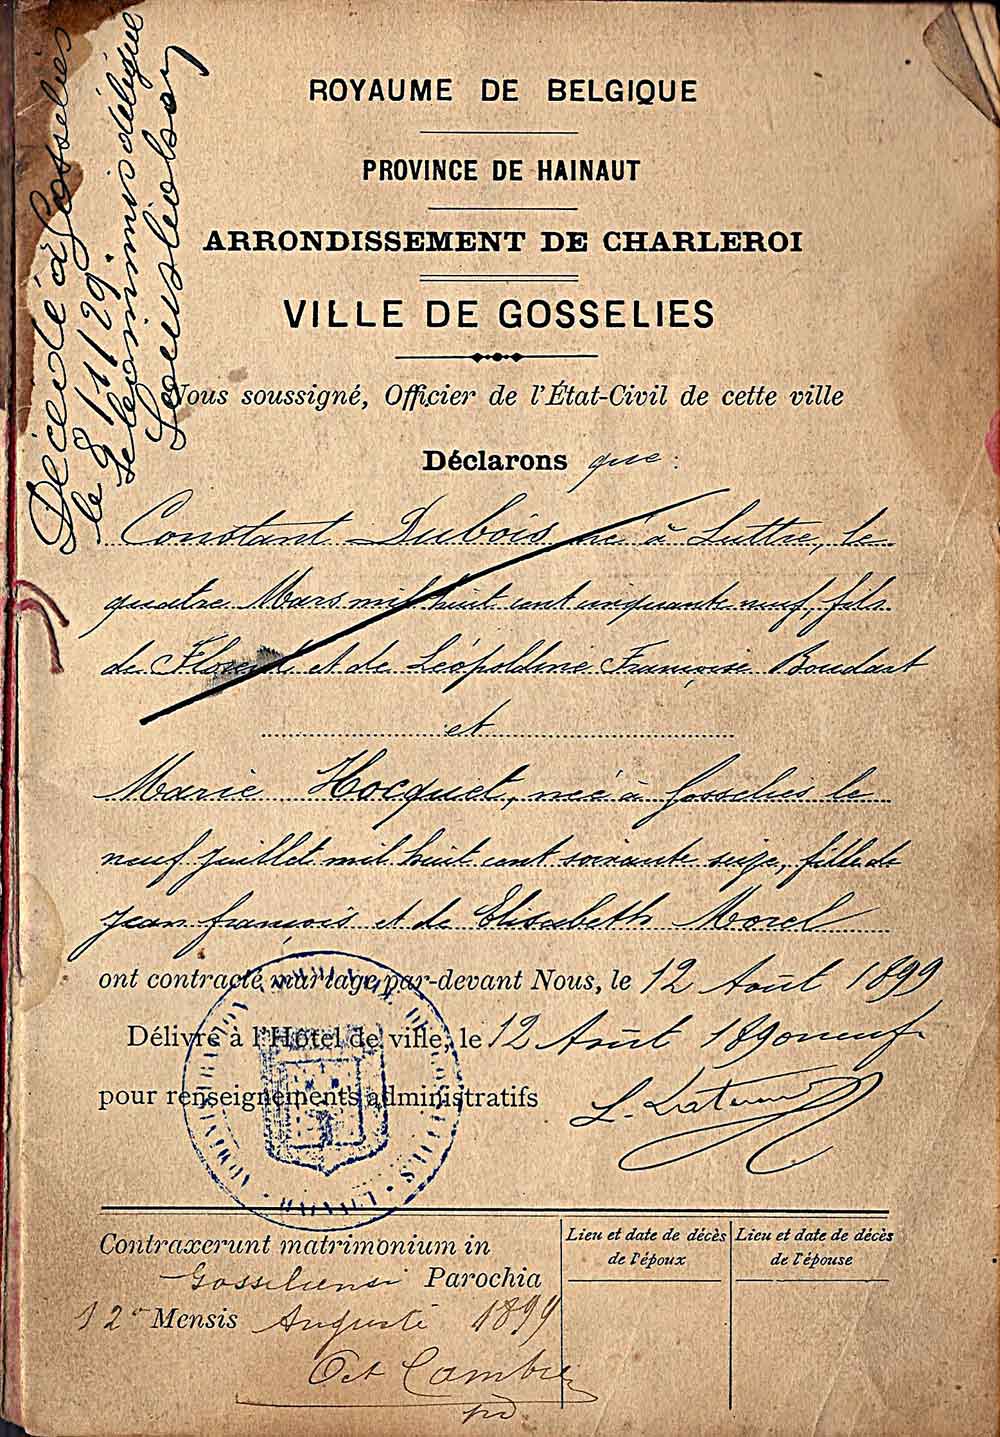 Décédé à Gosselies
le 8/11/29.
le commis délégué
ROYAUME DE BELGIQUE
PROVINCE DE HAINAUT
ARRONDISSEMENT DE CHARLEROI
VILLE DE GOSSELIES
Nous soussigné, Officier de l'État-Civil de cette ville
Déclarons que :
Constant Dubois né à Luttre, le
quatre Mars mil huit cent cinquante neuf, fils
de Florent et de Léopoldine Françoise Boudart
et
Marie Hocquet, née à Gosselies le
neuf Juillet mil huit cent soixante seize, fille de
Jean françois et de Elisabeth Morel
ont contracté mariage par-devant Nous, le 12 Août 1899
Délivré à l'Hôtel de ville, le 12 Août 1890neuf
pour renseignements administratifs
Contraxerunt matrimonium in
Gosseliensi Parochia
12a Mensis Augusti 1899
Oct Cambier
Lieu et date de décès
de l'époux
Lieu et date de décès
de l'épouse